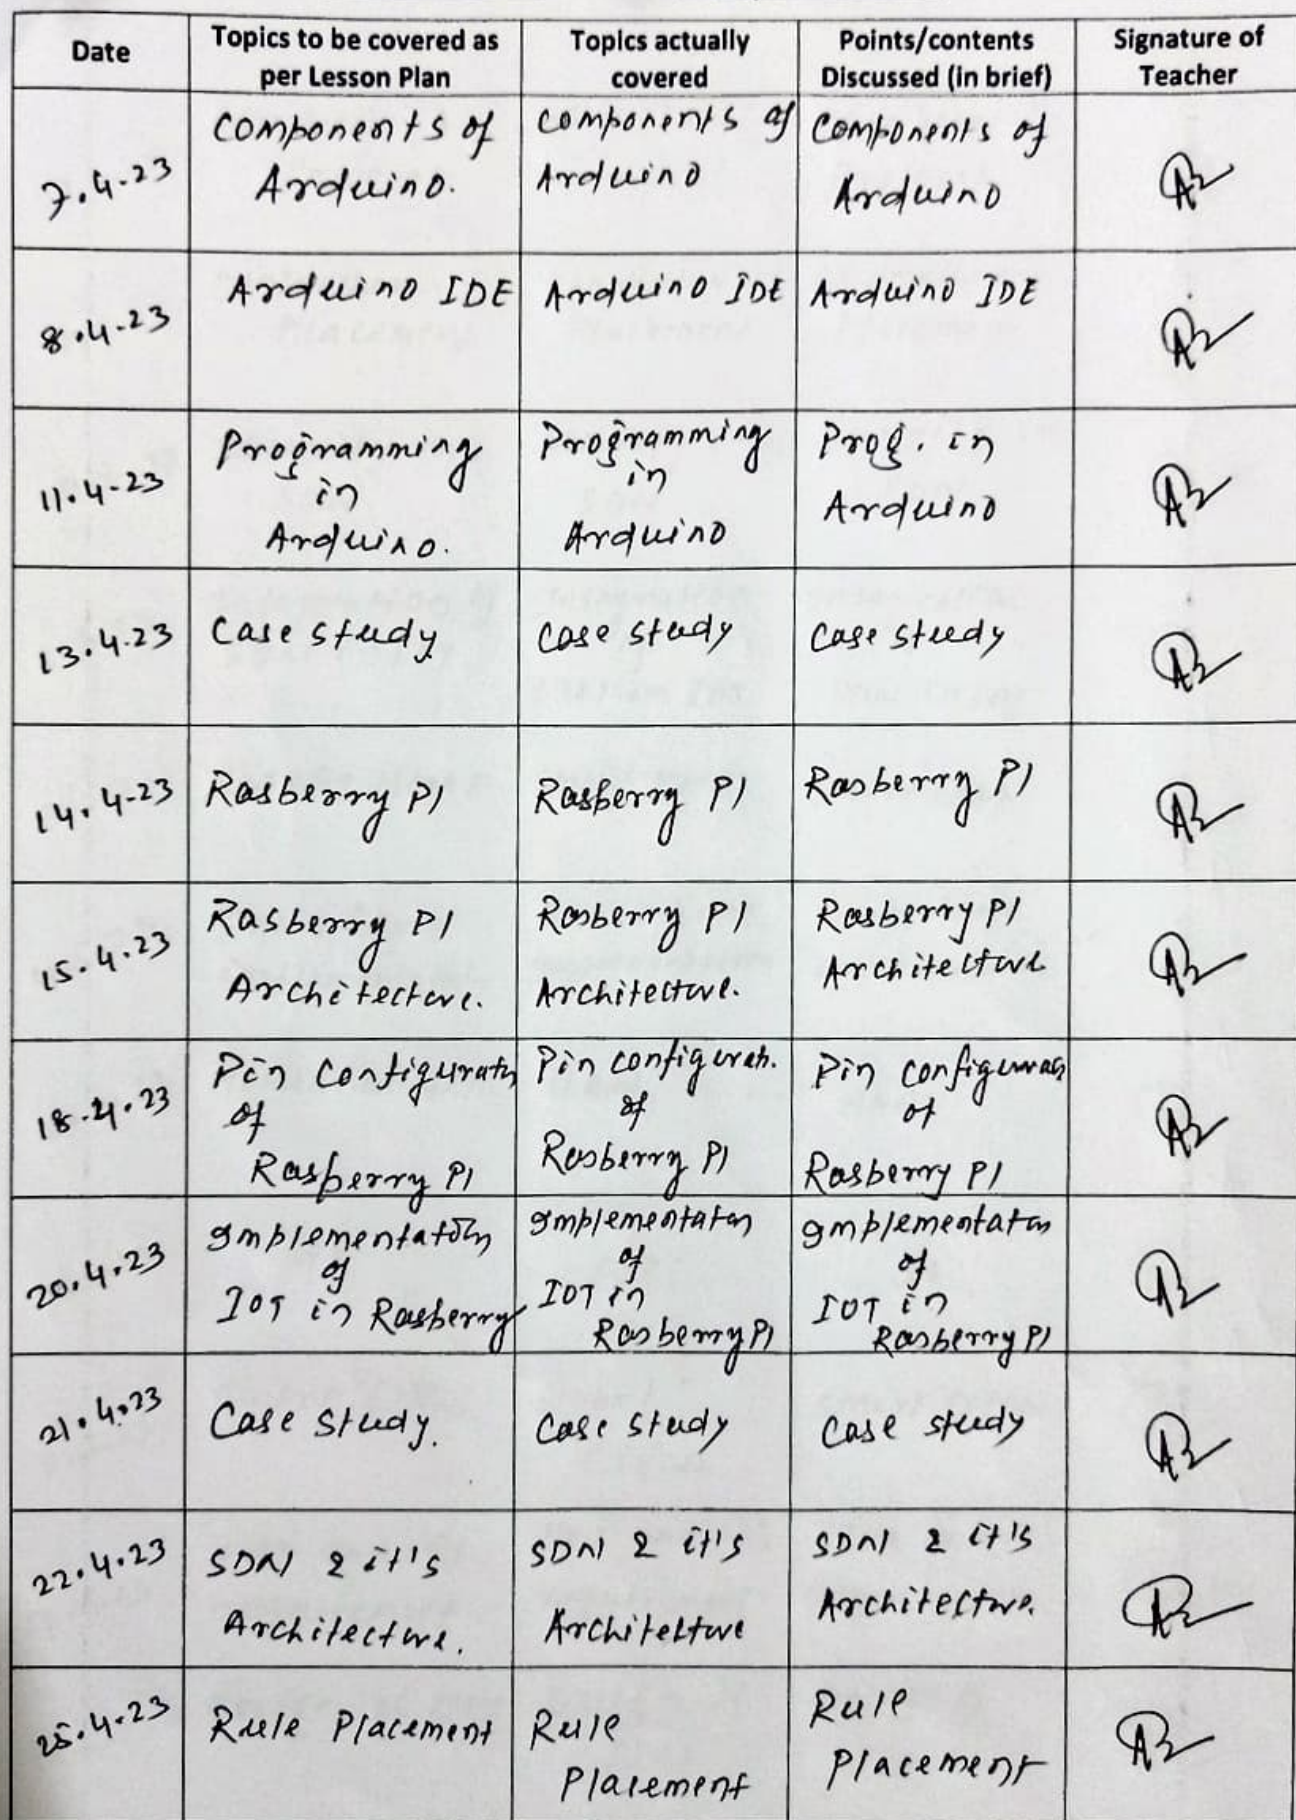 Date
Topics to be covered as
per Lesson Plan
Topics actually
covered
Points/contents
Discussed (in brief)
Signature of
Teacher
7.4.23
Components of
Arduino.
Components of
Arduino
Components of
Arduino
8.4.23
Arduino IDE
Arduino IDE
Arduino IDE
11.4.23
Programming
in
Arduino.
Programming
in
Arduino
Prog. in
Arduino
13.4.23
Case study.
Case study
Case study
14.4.23
Rasberry PI
Rasberry PI
Rasberry PI
15.4.23
Rasberry PI
Architecture.
Rasberry PI
Architecture.
Rasberry PI
Architecture
18.4.23
Pin Configuratn
of
Rasberry PI
Pin configurah.
of
Rasberry PI
Pin configuratn
of
Rasberry PI
20.4.23
Implementation
of
IOT in Rasberry
Implementaton
of
IOT in
Rasberry PI
Implementaton
of
IOT in
Rasberry PI
21.4.23
Case Study.
Case Study
Case study
22.4.23
SDN & it's
Architecture.
SDN & it's
Architecture
SDN & it's
Architecture.
25.4.23
Rule Placement
Rule
Placement
Rule
Placement